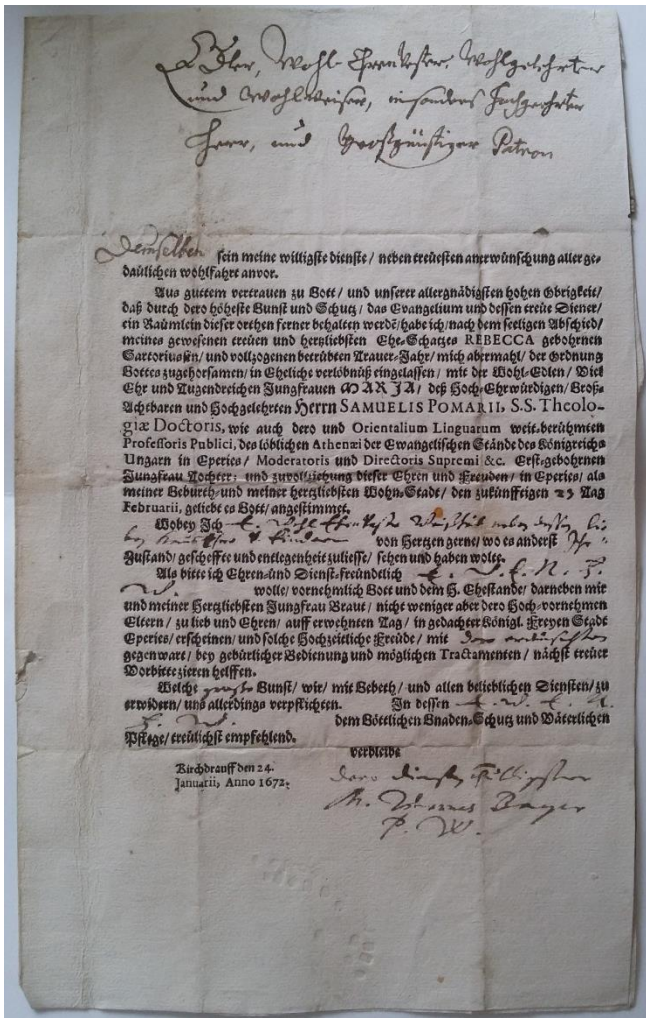 Edler, Wohl-Ehrenvester, Wohlgelehrter
und Wohlweiser, insonders Hochgeehrter
Herr, und Großgünstiger Patron
Demselben sein meine willigste dienste / neben treuesten anerwünschung aller ge-
daülichen wohlfahrt anvor.
Aus guttem vertrauen zu Gott / und unserer allergnädigsten hohen Obrigkeit /
daß durch dero höheste Gunst und Schutz / das Evangelium und dessen treüe Diener /
ein Räumlein dieser orthen ferner behalten werdē / habe ich / nach dem seeligen Abschied /
meines gewesenen treuen und hertzliebsten Ehe-Schatzes REBECCA gebohrnen
Sartoriussin / und vollzogenen betrübten Trauer-Jahr / mich abermahl / der Ordnung
Gottes zugehorsamen / in Eheliche verlöbnüß eingelassen / mit der Wohl-Edlen / Viel
Ehr und Tugendreichen Jungfrauen MARJA / deß Hoch-Ehrwürdigen / Groß-
Achtbaren und Hochgelehrten Herrn SAMUELIS POMARII, S.S. Theolo-
giæ Doctoris, wie auch dero und Orientalium Linguarum weit-berühmten
Professoris Publici, des löblichen Athenæi der Ewangelischen Stände des Königreichs
Ungarn in Eperies / Moderatoris und Directoris Supremi &c. Erst-gebohrnen
Jungfrau Tochter: und zuvollziehung dieser Ehren und Freuden / in Eperies / als
meiner Geburth-und meiner hertzliebsten Wohn-Stadt / den zukünffeigen 23 Tag
Februarii, geliebt es Gott / angestimmet.
Wobey Jch E. Wohl Ehrenveste Weißheit neben dessen
von Hertzen gerne / wo es anderst Ihr
Zustand / gescheffte und entlegenheit zuliesse / sehen und haben wolte.
Als bitte ich Ehren-und Dienst-freündelich E. W. E. N. H.
W. wolle / vornehmlich Gott und dem H. Ehestande / darneben mir
und meiner Hertzliebsten Jungfrau Braut / nicht weniger aber dero Hoch-vornehmen
Eltern / zu lieb und Ehren / auff erwehnten Tag / in gedachter Königl. Freyen Stadt
Eperies / erscheinen / und solche Hochzeitliche Freüde / mit dero
gegenwart / bey gebürlicher Bedienung und möglichen Tractamenten / nächst treuer
Vorbitte zieren helffen.
Welche grosse Gunst / wir / mit Gebeth / und allen belieblichen Diensten / zu
erwidern / uns allerdings verpflichten. In dessen E. W. E. N.
H. W. dem Göttlichen Gnaden-Schutz und Väterlichen
Pflege / treulichst empfehlend.
verbleibe
Kirchdrauff den 24.
Januarii, Anno 1672.
dero dienstwilligster
M. Thomas Bayer
P. W.